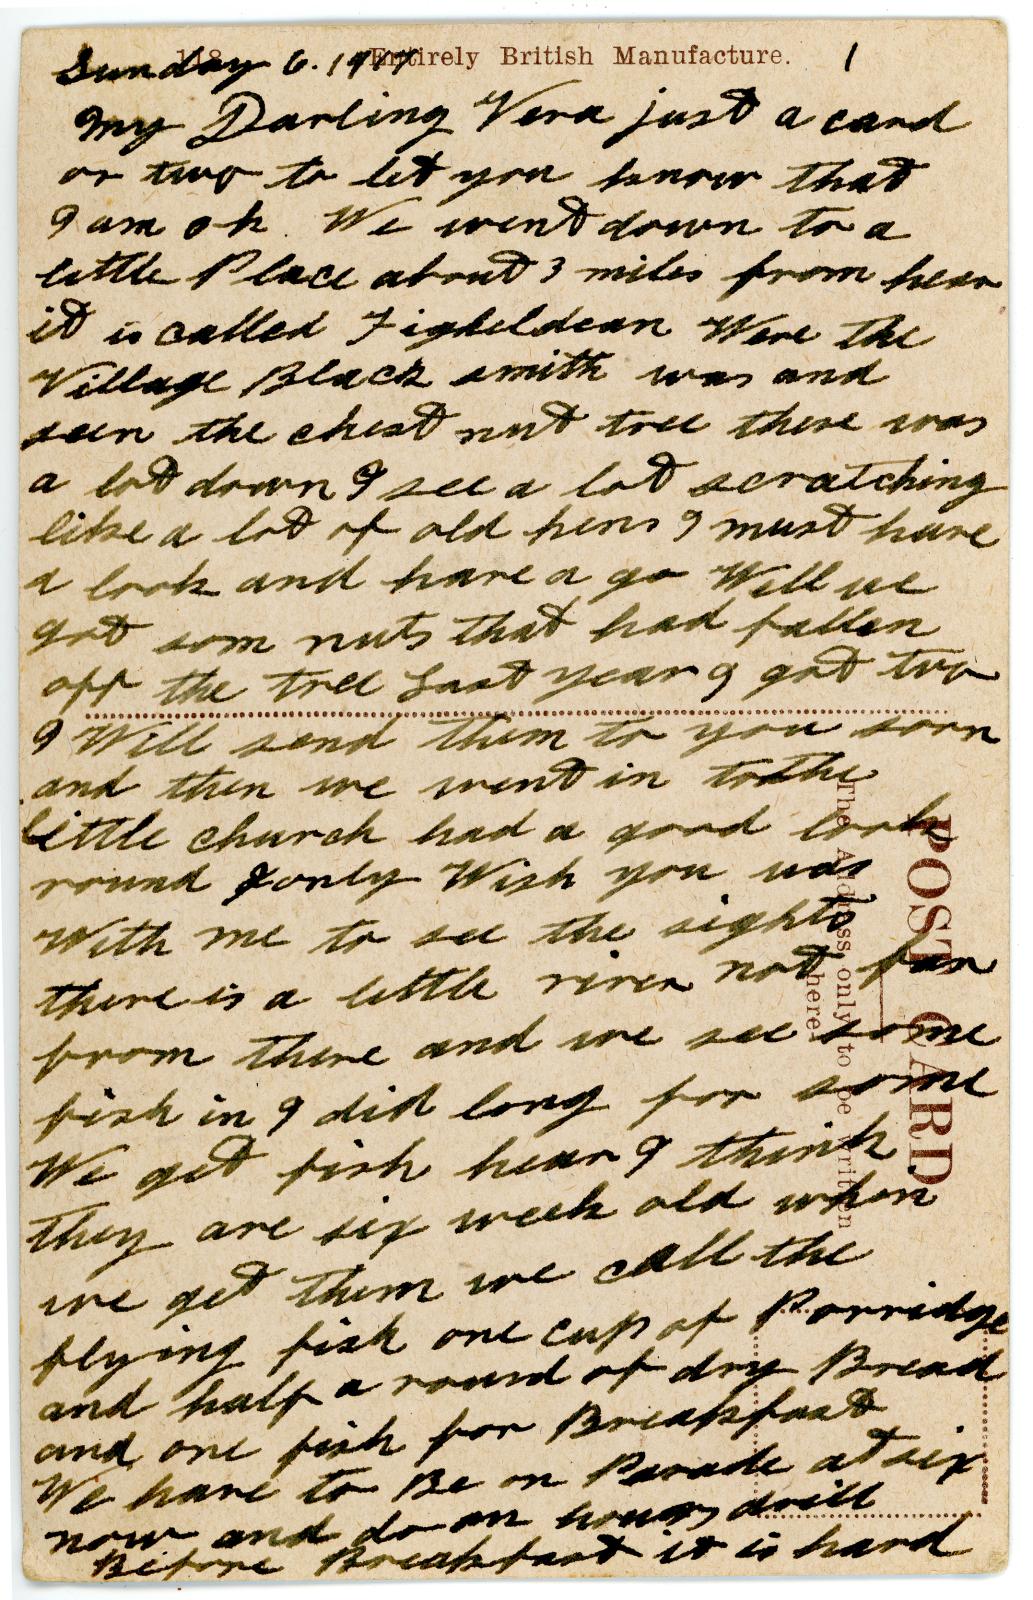 118 Entirely British Manufacture.
Sunday 6. 1917 1
My Darling Vera just a card
or two to let you know that
I am ok. We went down to a
little Place about 3 miles from hear
it is called Figheldean Were the
Village Black smith was and
seen the chest nut tree there was
a lot down I see a lot scratching
like a lot of old hens I must have
a look and have a go Well we
got som nuts that had fallen
off the tree Last year I got two
I Will send them to you soon
and then we went in to the
little church had a good look
round I only Wish you was
With me to see the sights
there is a little river not far
from there and we see some
fish in I did long for some
We get fish hear I think
they are six week old when
we get them we call the
flying fish one cup of Porridge
and half a round of dry Bread
and one fish for Breakfast
We have to Be on Parade at six
now and do an hours drill
Before Breakfast it is hard
POST CARD
The Address only to be written
here